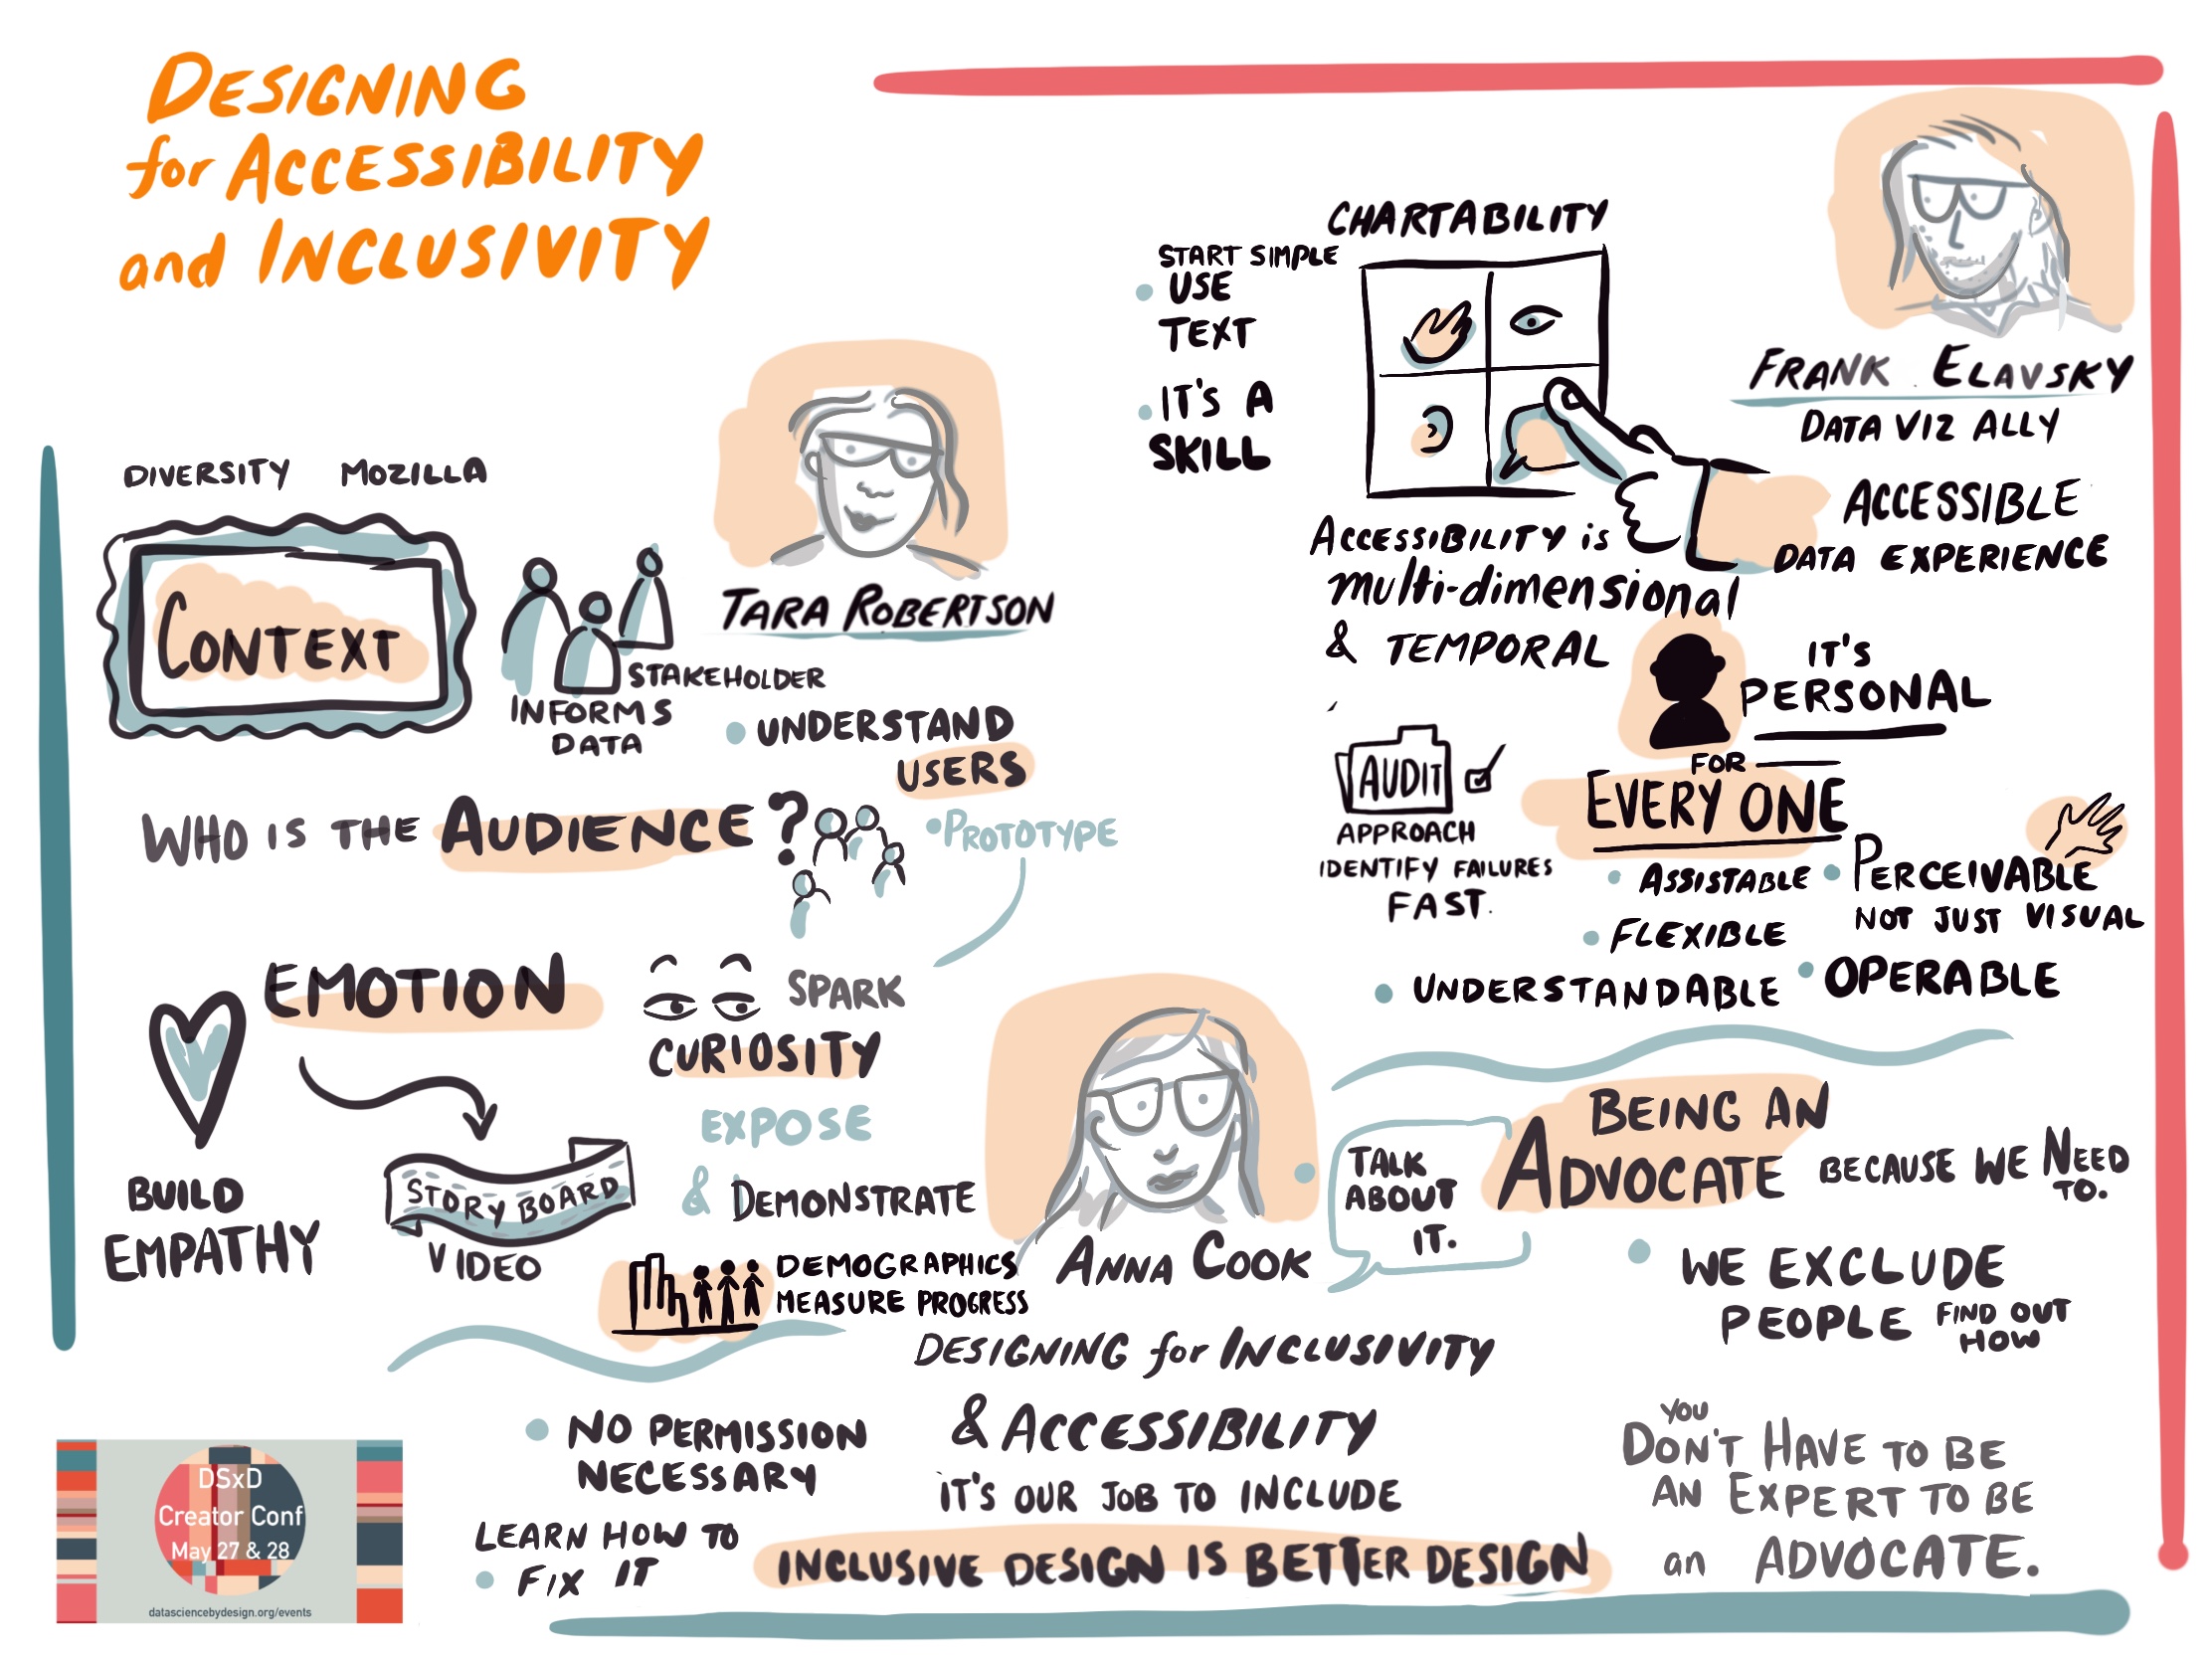 DESIGNING
for ACCESSIBILITY
and INCLUSIVITY
DIVERSITY MOZILLA
CONTEXT
STAKEHOLDER
INFORMS
DATA
TARA ROBERTSON
UNDERSTAND
USERS
PROTOTYPE
WHO IS THE AUDIENCE?
EMOTION
BUILD
EMPATHY
STORY BOARD
VIDEO
SPARK
CURIOSITY
EXPOSE
& DEMONSTRATE
DEMOGRAPHICS
MEASURE PROGRESS
CHARTABILITY
START SIMPLE
USE
TEXT
IT'S A
SKILL
FRANK ELAVSKY
DATA VIZ ALLY
ACCESSIBLE
DATA EXPERIENCE
ACCESSIBILITY is
multi-dimensional
& TEMPORAL
IT'S
PERSONAL
FOR
EVERY ONE
AUDIT
APPROACH
IDENTIFY FAILURES
FAST.
ASSISTABLE
FLEXIBLE
UNDERSTANDABLE
PERCEIVABLE
NOT JUST VISUAL
OPERABLE
ANNA COOK
TALK
ABOUT
IT.
BEING AN
ADVOCATE BECAUSE WE NEED
TO.
WE EXCLUDE
PEOPLE FIND OUT
HOW
DESIGNING for INCLUSIVITY
& ACCESSIBILITY
IT'S OUR JOB TO INCLUDE
INCLUSIVE DESIGN IS BETTER DESIGN
NO PERMISSION
NECESSARY
LEARN HOW TO
FIX IT
YOU
DON'T HAVE TO BE
AN EXPERT TO BE
an ADVOCATE.
DSxD
Creator Conf
May 27 & 28
datasciencebydesign.org/events